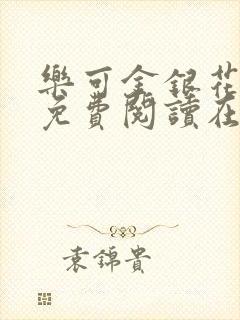 樂可金銀花
免費閱讀在
袁錦貴